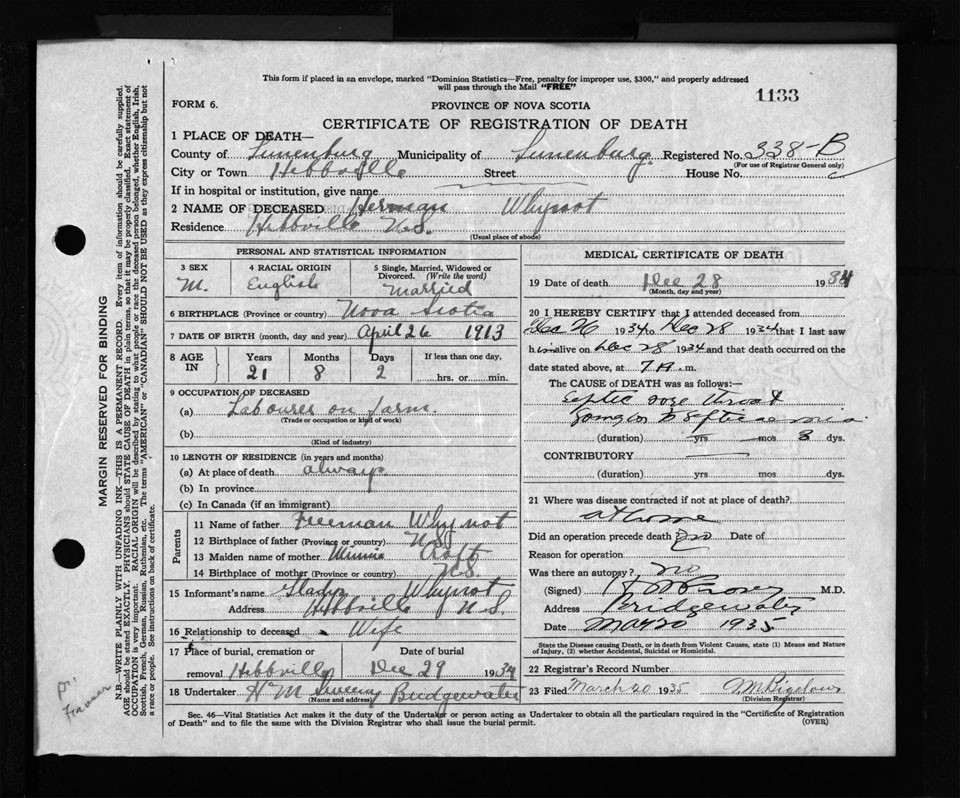 This form if placed in an envelope, marked "Dominion Statistics—Free, penalty for improper use, $300," and properly addressed
will pass through the Mail "FREE"
1133
FORM 6.
PROVINCE OF NOVA SCOTIA
CERTIFICATE OF REGISTRATION OF DEATH
1 PLACE OF DEATH—
County of Lunenburg Municipality of Lunenburg Registered No. 338-B
(For use of Registrar General only)
City or Town Hebbville Street House No.
If in hospital or institution, give name
2 NAME OF DECEASED Herman Whynot
Residence Hebbville N.S.
(Usual place of abode)
PERSONAL AND STATISTICAL INFORMATION
3 SEX
M.
4 RACIAL ORIGIN
English
5 Single, Married, Widowed or
Divorced. (Write the word)
Married
6 BIRTHPLACE (Province or country) Nova Scotia
7 DATE OF BIRTH (month, day and year) April 26 1913
8 AGE IN
Years Months Days If less than one day.
21 8 2 hrs. or min.
9 OCCUPATION OF DECEASED
(a) Labourer on farm.
(Trade or occupation or kind of work)
(b)
(Kind of industry)
10 LENGTH OF RESIDENCE (in years and months)
(a) At place of death always
(b) In province
(c) In Canada (if an immigrant)
Parents
11 Name of father Freeman Whynot
12 Birthplace of father (Province or country) N.S.
13 Maiden name of mother Minnie
14 Birthplace of mother (Province or country) N.S.
15 Informant's name Gladys Whynot
Address Hebbville N.S.
16 Relationship to deceased Wife
17 Place of burial, cremation or Date of burial
removal Hebbville Dec 29 1934
18 Undertaker H M Sweeny Bridgewater
(Name and address)
MEDICAL CERTIFICATE OF DEATH
19 Date of death Dec 28 1934
(Month, day and year)
20 I HEREBY CERTIFY that I attended deceased from
Dec 26 1934 to Dec 28 1934 that I last saw
him alive on Dec 28 1934 and that death occurred on the
date stated above, at 7 A. m.
The CAUSE of DEATH was as follows:
Septic sore throat
Going on to Septicaemia
(duration) yrs mos 3 dys.
CONTRIBUTORY
(duration) yrs. mos. dys.
21 Where was disease contracted if not at place of death?
at home
Did an operation precede death no Date of
Reason for operation
Was there an autopsy? no
(Signed) M.D.
Address Bridgewater
Date Mar 20 1935
State the Disease causing Death, or in death from Violent Causes, state (1) Means and Nature
of Injury, (2) whether Accidental, Suicidal or Homicidal.
22 Registrar's Record Number
23 Filed March 20 1935
(Division Registrar)
Sec. 46—Vital Statistics Act makes it the duty of the Undertaker or person acting as Undertaker to obtain all the particulars required in the "Certificate of Registration
of Death" and to file the same with the Division Registrar who shall issue the burial permit. (OVER)
MARGIN RESERVED FOR BINDING
N.B. WRITE PLAINLY WITH UNFADING INK—THIS IS A PERMANENT RECORD. Every item of information should be carefully supplied.
AGE should be stated EXACTLY. PHYSICIANS should STATE CAUSE OF DEATH in plain terms, so that it may be properly classified. Exact statement of
OCCUPATION is very important. RACIAL ORIGIN will be described by stating to what people or race the deceased person belonged, whether English, Irish,
Scottish, French, German, Russian, Ruthenian, etc. The terms "AMERICAN" or "CANADIAN" SHOULD NOT BE USED as they express citizenship but not
a race or people. See instructions on back of certificate.